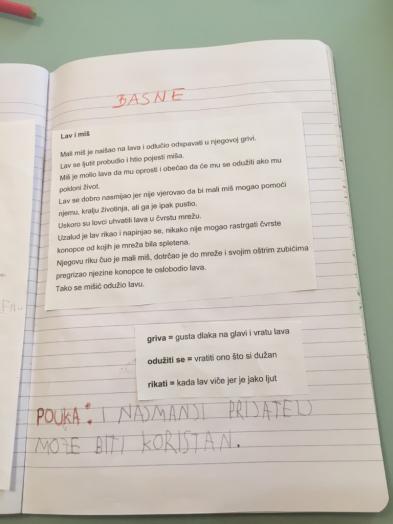 BASNE
Lav i miš
Mali miš je naišao na lava i odlučio odspavati u njegovoj grivi.
Lav se ljutit probudio i htio pojesti miša.
Miš je molio lava da mu oprosti i obećao da će mu se odužiti ako mu
pokloni život.
Lav se dobro nasmijao jer nije vjerovao da bi mali miš mogao pomoći
njemu, kralju životinja, ali ga je ipak pustio.
Uskoro su lovci uhvatili lava u čvrstu mrežu.
Uzalud je lav rikao i napinjao se, nikako nije mogao rastrgati čvrste
konopce od kojih je mreža bila spletena.
Njegovu riku čuo je mali miš, dotrčao je do mreže i svojim oštrim zubićima
pregrizao njezine konopce te oslobodio lava.
Tako se mišić odužio lavu.
griva = gusta dlaka na glavi i vratu lava
odužiti se = vratiti ono što si dužan
rikati = kada lav viče jer je jako ljut
POUKA: I NAJMANJI PRIJATELJ
MOŽE BITI KORISTAN.